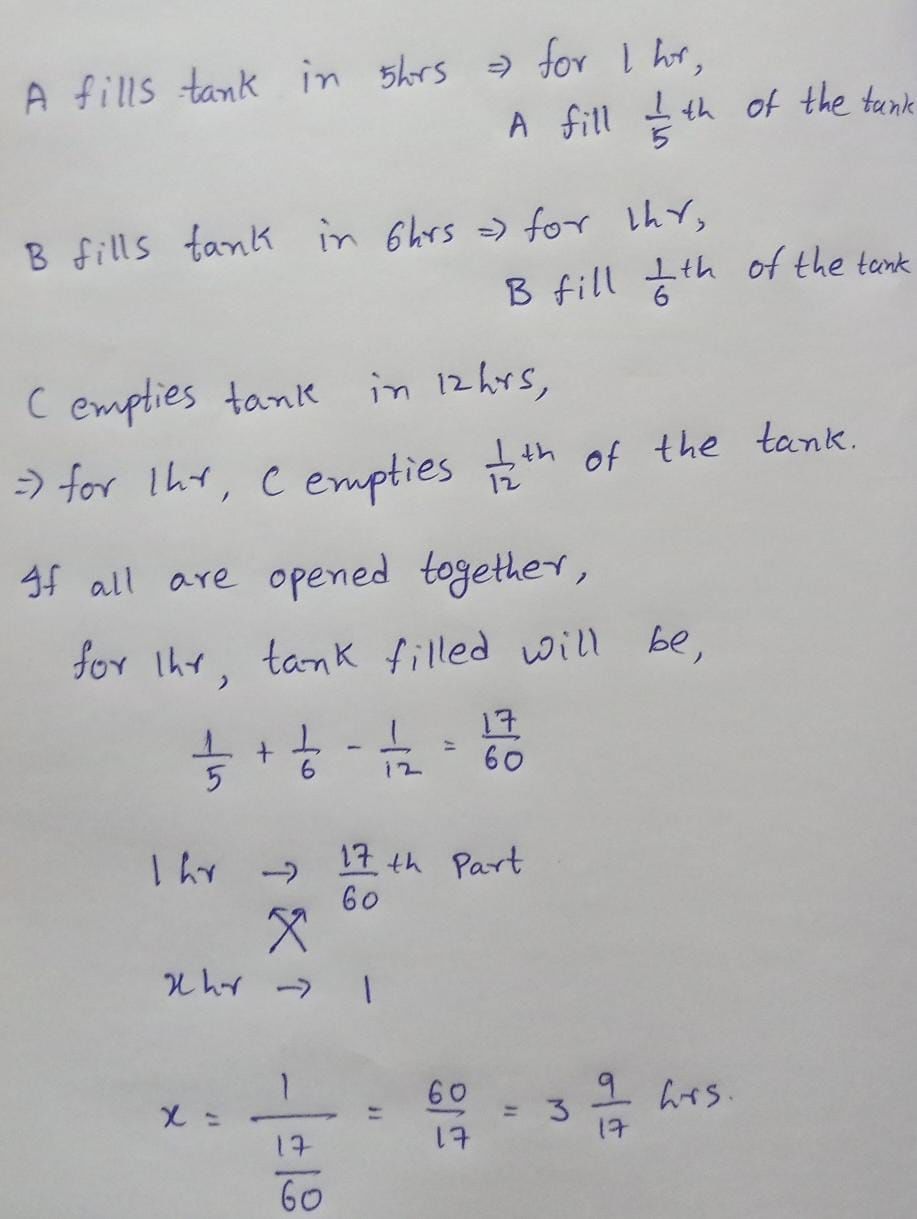 A fills tank in 5hrs ⇒ for 1 hr,
A fill 1/5 th of the tank
B fills tank in 6hrs ⇒ for 1hr,
B fill 1/6 th of the tank
C empties tank in 12hrs,
⇒ for 1hr, C empties 1/12 th of the tank.
If all are opened together,
for 1hr, tank filled will be,
1/5 + 1/6 - 1/12 = 17/60
1 hr → 17/60 th Part
x hr → 1
x = 1/(17/60) = 60/17 = 3 9/17 hrs.